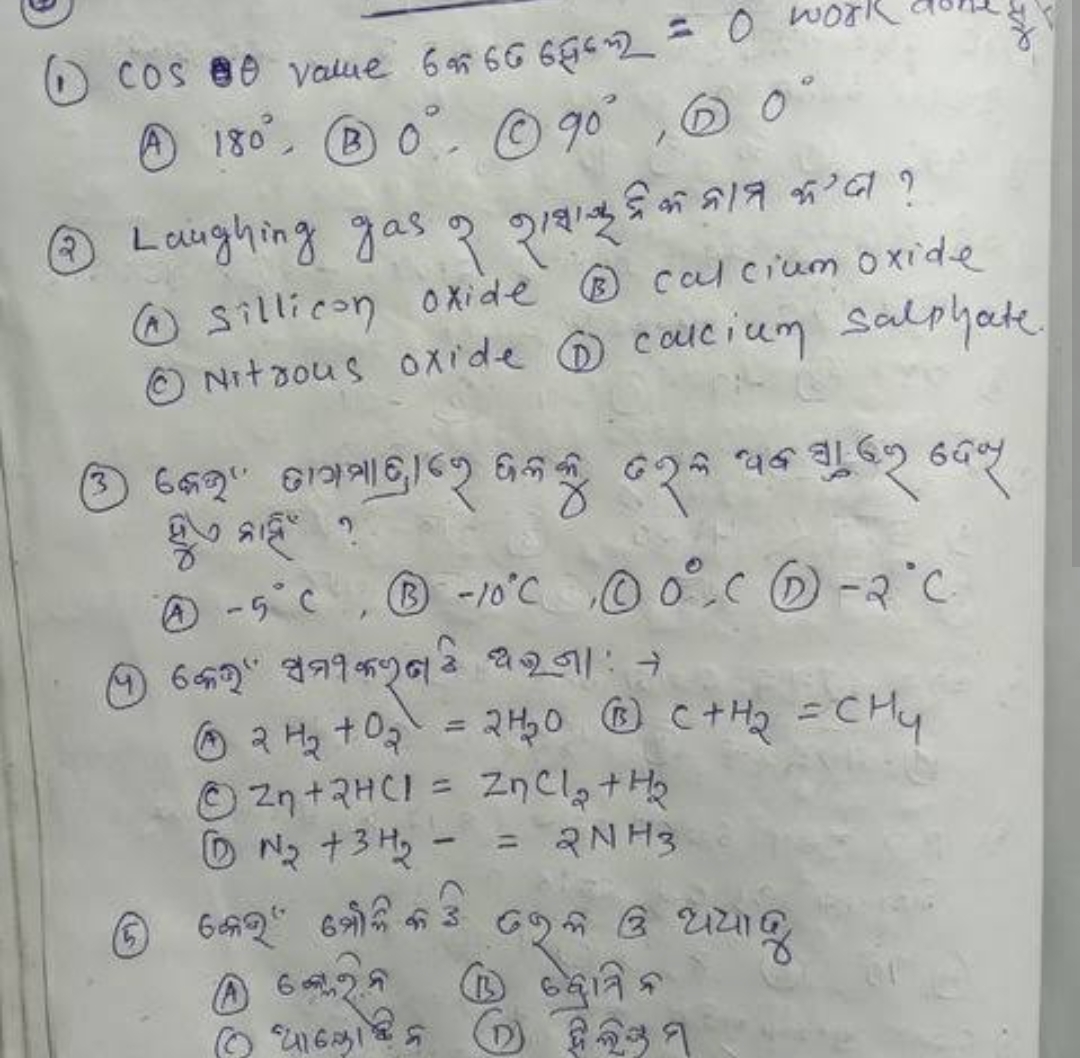 ① cos θ value କେତେ ହେଲେ = 0 work done ହୁଏ
Ⓐ 180°, Ⓑ 0°, Ⓒ 90°, Ⓓ 0°
② Laughing gas ର ରାସାୟନିକ ନାମ କ'ଣ ?
Ⓐ sillicon oxide Ⓑ calcium oxide
Ⓒ Nitrous oxide Ⓓ calcium salphate.
③ କେଉଁ ତାପମାତ୍ରାରେ ଜଳକୁ ତରଳ ଅବସ୍ଥାରେ ଦେଖା
ହୁଏ ନାହିଁ ?
Ⓐ -5°C, Ⓑ -10°C, Ⓒ 0°C Ⓓ -2°C
④ କେଉଁ ସମୀକରଣଟି ଅଲଗା : →
Ⓐ 2H₂ + O₂ = 2H₂O Ⓑ C + H₂ = CH₄
Ⓒ Zn + 2HCl = ZnCl₂ + H₂
Ⓓ N₂ + 3H₂ - = 2NH₃
⑤ କେଉଁ ମୌଳିକଟି ତରଳ ଓ ଅଧାତୁ
Ⓐ କ୍ଲୋରିନ Ⓑ ବ୍ରୋମିନ
Ⓒ ଆୟୋଡିନ Ⓓ ହିଲିୟମ